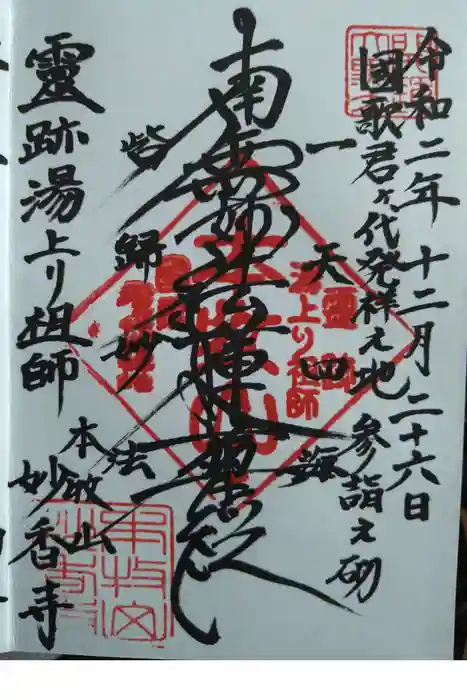 令和二年十二月二十六日
國歌君ヶ代発祥之地 参詣之砌
一天四海
南無妙法蓮華経
皆歸妙法
本牧山
妙香寺
靈跡湯上り祖師
靈跡
湯上り祖師
本牧山